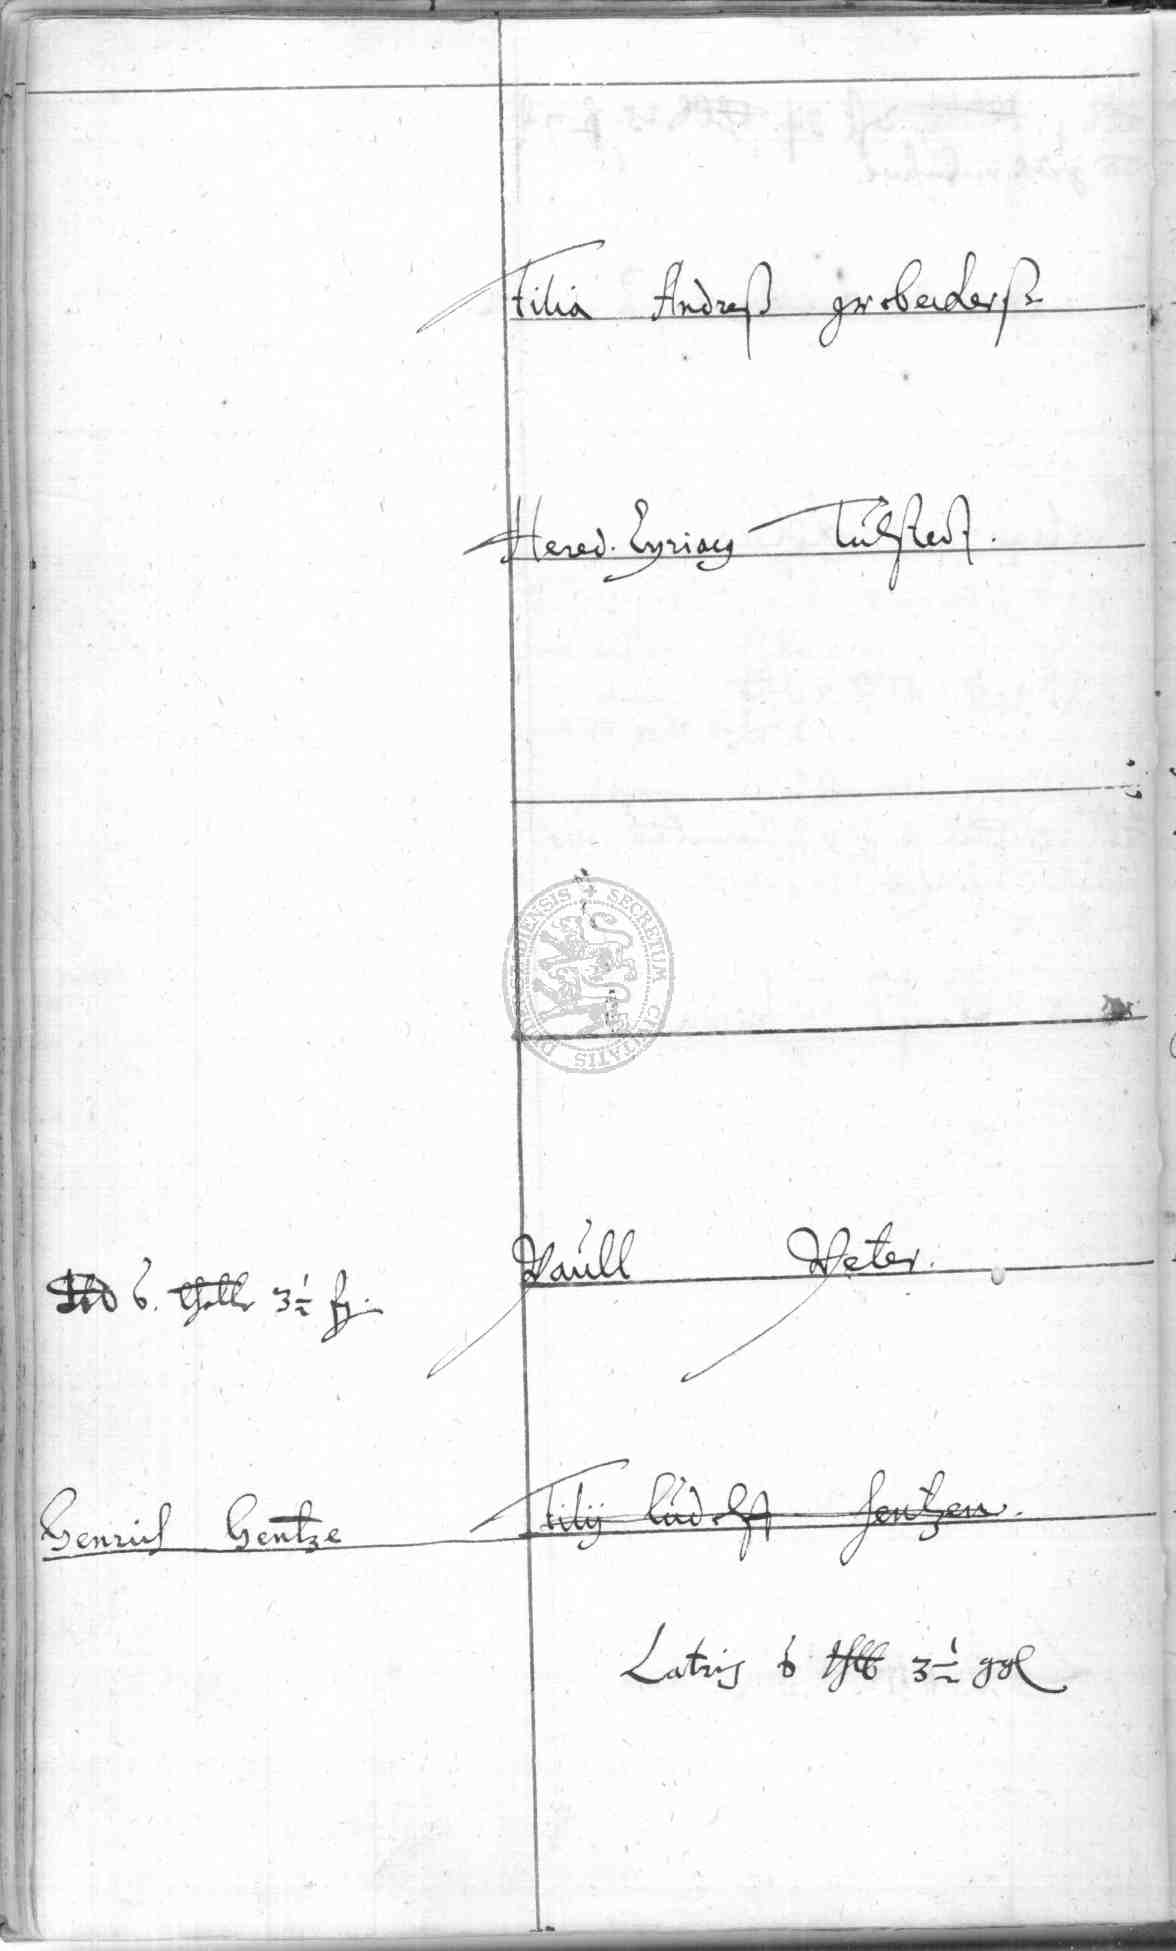 Filia Andreß grobeckerß
Hered. Cyriacy Tulstedt.
SECRETUM CIVITATIS
Paull Peter.
6. thallr 3½ fg.
Henrich Hentze
Filij Ludolff Hentzen.
Latris 6 thlr 3½ ggl